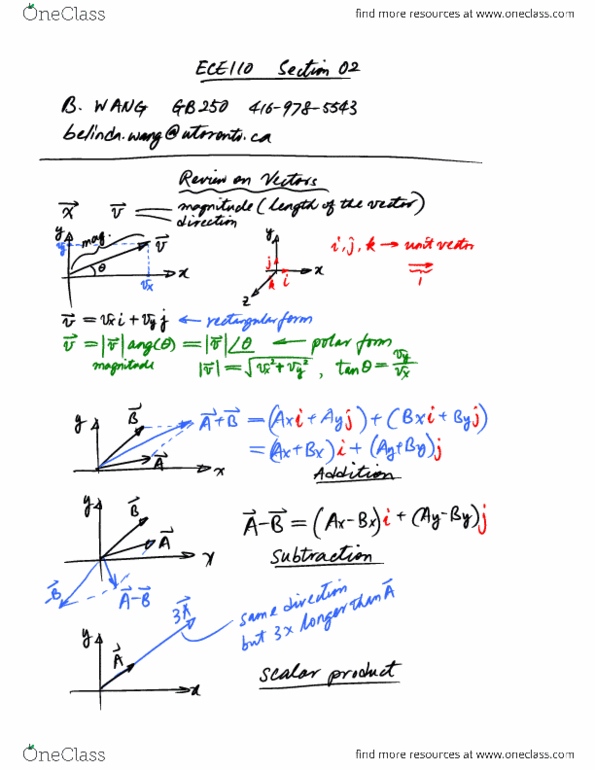 OneClass
find more resources at www.oneclass.com
ECE110 Section 02
B. WANG GB250 416-978-5543
belinda.wang@utoronto.ca
Review on Vectors
x⃗ v⃗ magnitude (length of the vector)
direction
y mag. v⃗ θ x vx vy
y j k i x z
i, j, k → unit vector
1
v⃗ = vx i + vy j ← rectangular form
v⃗ = |v⃗| ang(θ) = |v⃗| ∠θ ← polar form
magnitude |v⃗| = √(vx² + vy²), tanθ = vy/vx
y B⃗ A⃗ x
A⃗+B⃗ = (Axi + Ayj) + (Bxi + Byj)
= (Ax+Bx)i + (Ay+By)j
Addition
y B⃗ A⃗ x
-B⃗ A⃗-B⃗
A⃗-B⃗ = (Ax-Bx)i + (Ay-By)j
Subtraction
y A⃗ 3A⃗ x
same direction
but 3x longer than A⃗
scalar product
OneClass
find more resources at www.oneclass.com